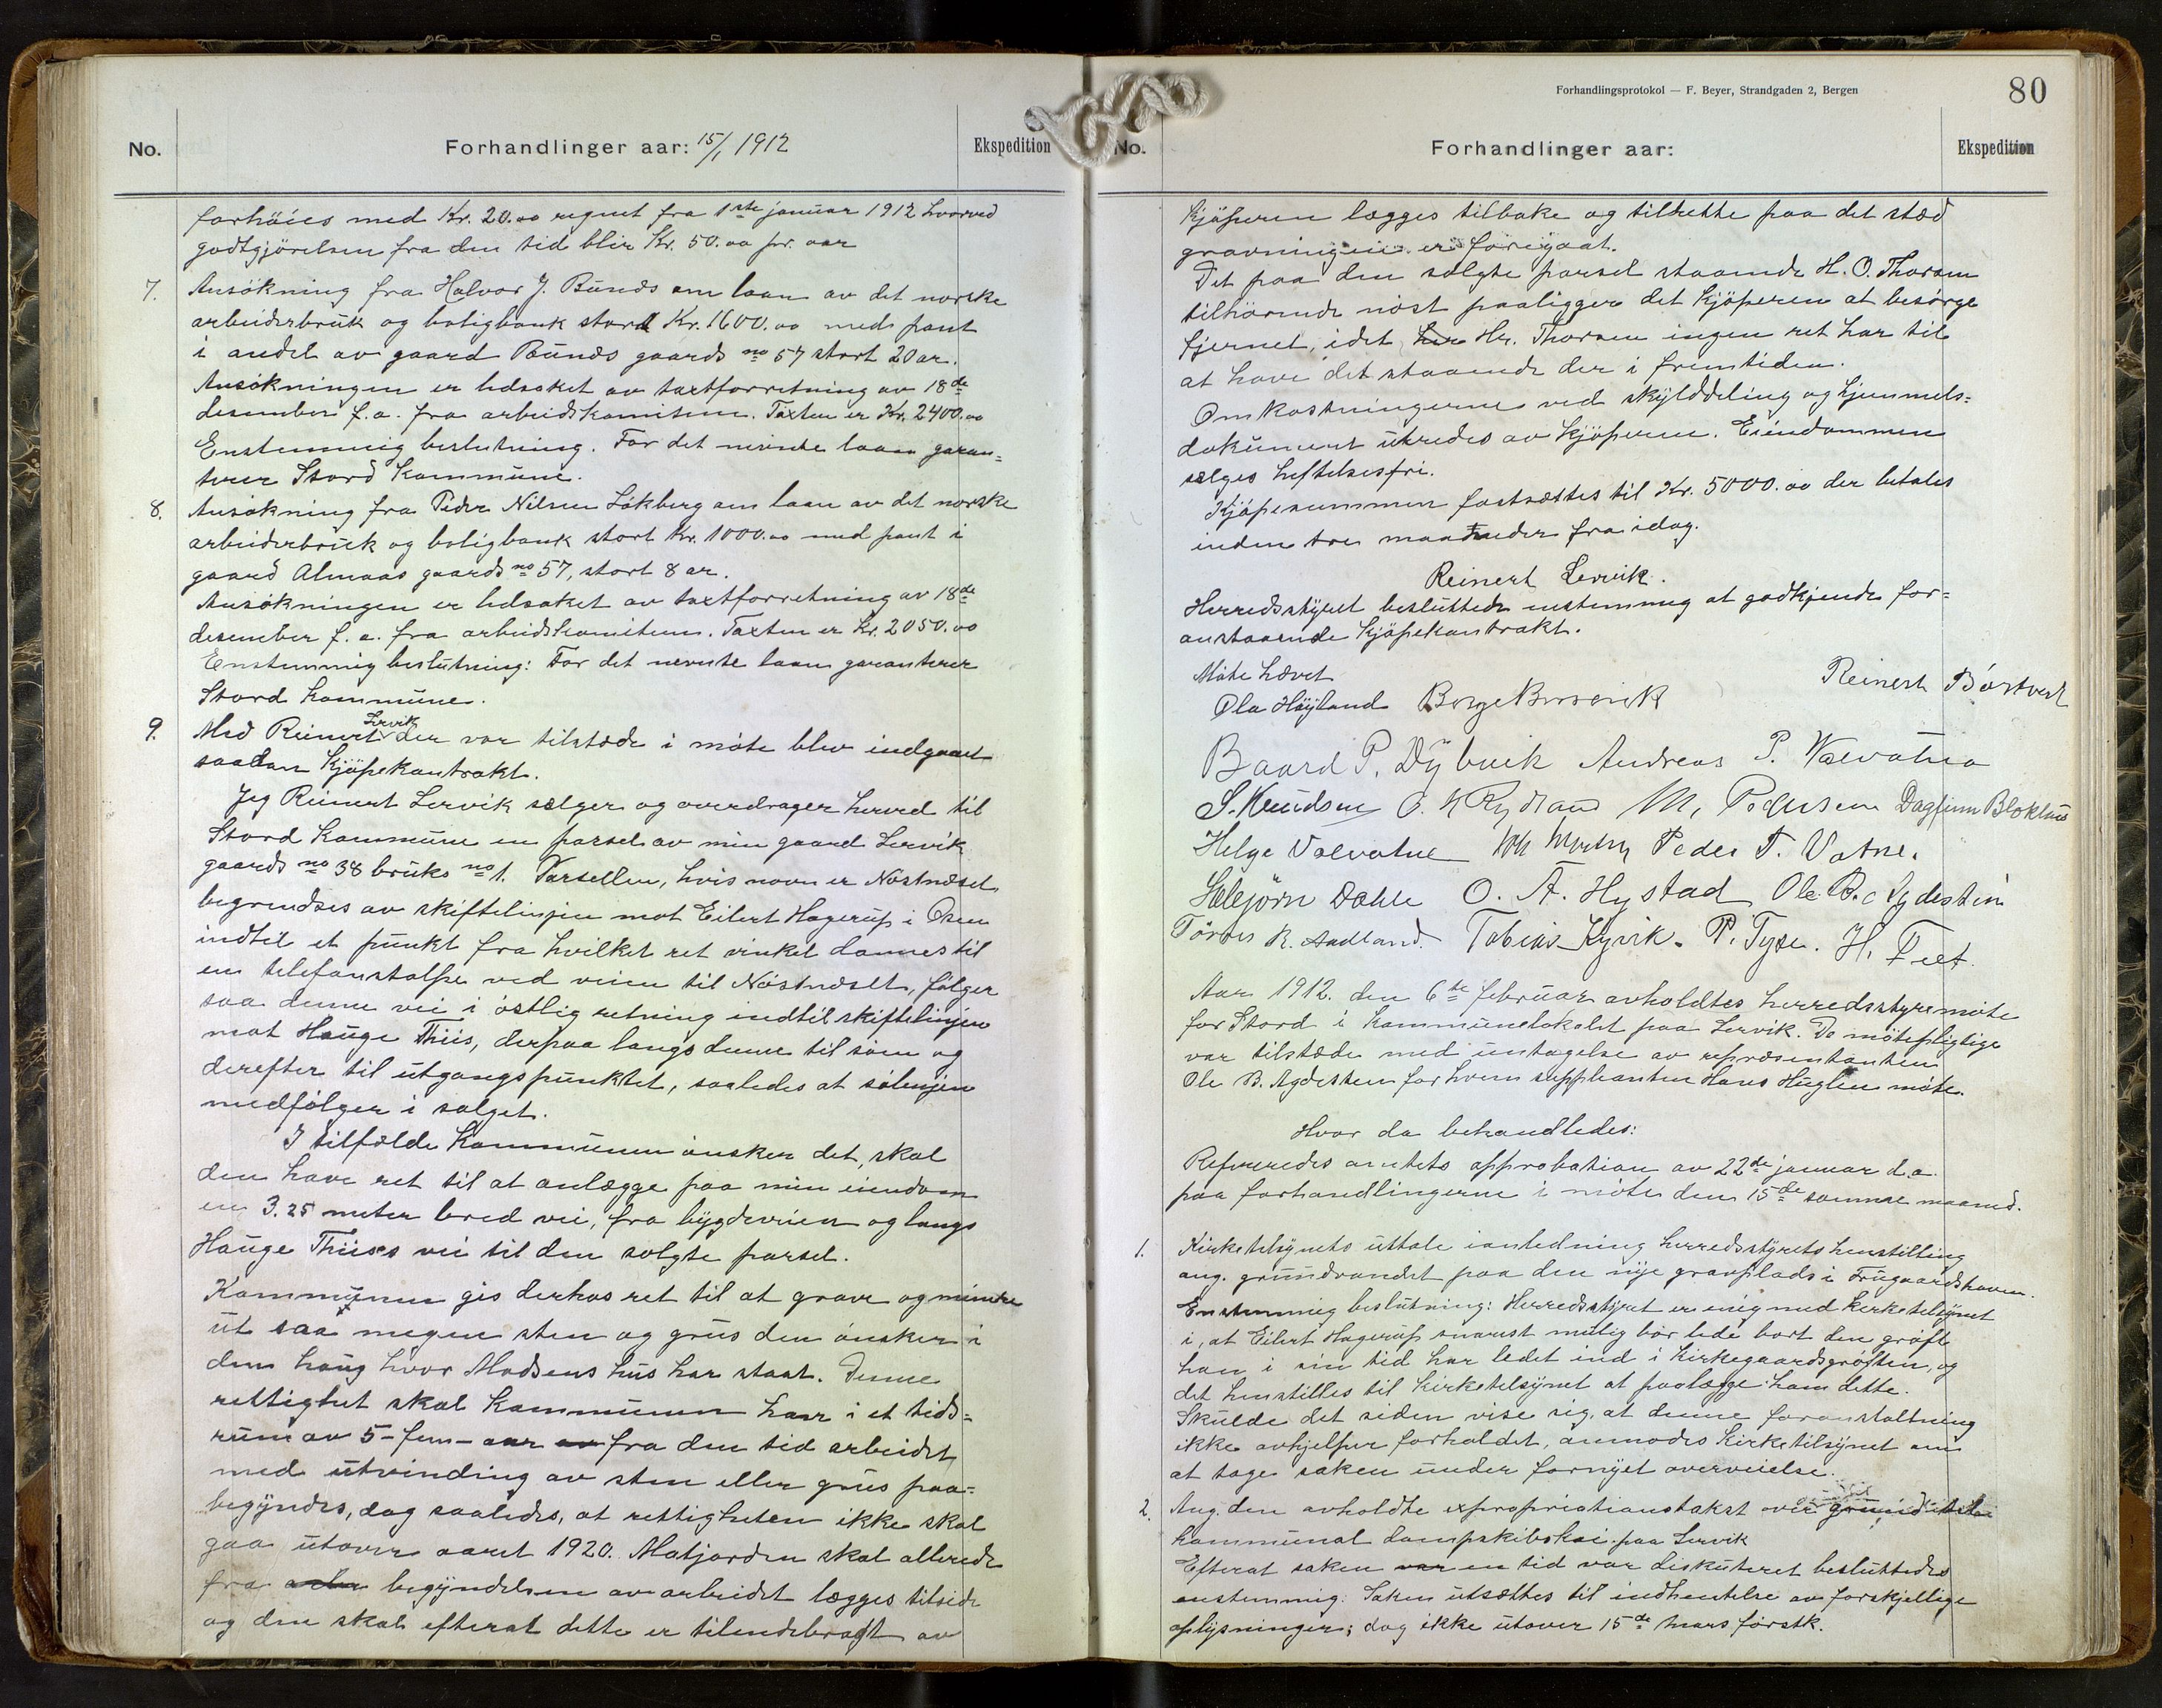 No.
Forhandlinger aar: 15/1 1912
Ekspedition
forhöies med Kr. 20.oo regnet fra 1ste januar 1912 hvorved
godtgjörelsen fra den tid blir Kr. 50.oo pr. aar
7. Ansökning fra Halvor J. Bunds om laan av det norske
arbeiderbruk og boligbank stort Kr. 1600.oo med pant
i andel av gaard Bunds gaards no 57 stort 20 ar.
Ansökningen er ledsaket av taxtforretning av 18de
desember f.a. fra arbeidskomiteen. Taxten er Kr. 2400.oo
Enstemmig beslutning. For det nevnte laan garan=
terer Stord Kommune.
8. Ansökning fra Peder Nilsen Lökberg om laan av det norske
arbeiderbruk og boligbank stort Kr. 1000.oo med pant i
gaard Almaas gaards no 57, stort 8 ar.
Ansökningen er ledsaket av taxtforretning av 18de
desember f.a. fra arbeidskomiteen. Taxten er Kr. 2050.oo
Enstemmig beslutning: For det nevnte laan garanterer
Stord Kommune.
9. Med Reinert Lervik der var tilstæde i möte blev indgaaet
saadan Kjöpekontrakt.
Jeg Reinert Lervik sælger og overdrager herved til
Stord Kommune en parsel av min gaard Lervik
gaards no 38 bruks no 1. Parsellen, hvis navn er Nöstnæset
begrendses av skiftelinjen mot Eilert Hagerup i Osen
indtil et punkt fra hvilket ret vinkel dannes til
en telefonstolpe ved veien til Nöstnæset, fölger
saa denne vei i östlig retning indtil skiftelinjen
mot Hauge Thiis, derpaa langs denne til sjöen og
derefter til utgangspunktet, saaledes at sölinjen
medfölger i salget.
I tilfælde Kommunen önsker det, skal
den have ret til at anlægge paa min eiendom
en 3.25 meter bred vei, fra bygdeveien og langs
Hauge Thiises vei til den solgte parsel.
Kommunen gis derhos ret til at grave og minere
ut saa megen sten og grus den önsker i
den haug hvor Madsens hus har staat. Denne
rettighet skal Kommunen have i et tids=
rum av 5-fem-aar av fra den tid arbeidet
med utvinding av sten eller grus paa=
begyndes, dog saaledes, at rettigheten ikke skal
gaa utover aaret 1920. Matjorden skal allerede
fra arbe begyndelsen av arbeidet lægges tilside
og den skal efterat dette er tilendebragt av
Forhandlingsprotokol — F. Beyer, Strandgaden 2, Bergen
80
No.
Forhandlinger aar:
Ekspedition
Kjöperen lægges tilbake og tilrette paa det stæd
gravningen er foregaat.
Det paa den solgte parsel staaende H. O. Thorsen
tilhörende nöst paaligger det Kjöperen at besörge
fjernet, idet her Hr. Thorsen ingen ret har til
at have det staaende der i fremtiden.
Omkostningerne ved skylddeling og hjemmels=
dokument utredes av Kjöperen. Eiendommen
sælges heftelsesfri.
Kjöpesummen fastsættes til Kr. 5000.oo der betales
inden tre maaneder fra idag.
Reinert Lervik.
Herredsstyret besluttede enstemmig at godkjende for=
anstaaende Kjöpekontrakt.
Möte hævet
Ola Höyland Børge Børsvik Reinert Börtveit
Baard P. Dybvik Andreas P. Valvatna
S. Knudsen O. H Rydland M. Pedersen Dagfinn Bloklius
Helge Valvatne Peder T. Vatne.
Hallbjörn Dahle O. A. Hystad Ole B. Agdestein
Torbes R. Aadland. Tobias Kyvik. P. Tyse. H. Feet.
Aar 1912. den 6te februar avholdtes herredsstyremöte
for Stord i Kommunelokalet paa Lervik. De mötepligtige
var tilstæde med undtagelse av repræsentanten
Ole B. Agdesten for hvem suppleanten Hans Huglen möte.
Hvor da behandledes:
Refereredes amtets approbation av 22de januar d.a.
paa forhandlingerne i möte den 15de samme maaned.
1. Kirketilsynets uttale i anledning herredsstyrets henstilling
ang. grundvandet paa den nye gravplads i Frugaardshaven.
Enstemmig beslutning: Herredsstyret er enig med Kirketilsynet
i, at Eilert Hagerup snarest mulig bör lede bort den gröft
han i sin tid har ledet ind i Kirkegaardsgröften, og
det henstilles til Kirketilsynet at paalægge ham dette.
Skulde det siden vise sig, at denne foranstaltning
ikke avhjelper forholdet, anmodes Kirketilsynet om
at tage saken under fornyet overveielse.
2. Ang. den avholdte expropriationstakst over grund til
kommunal dampskibskai paa Lervik
Efterat saken var en tid var diskuteret besluttedes
enstemmig: Saken utsættes til indhentelse av forskjellige
oplysninger; dog ikke utover 15de mars förstk.